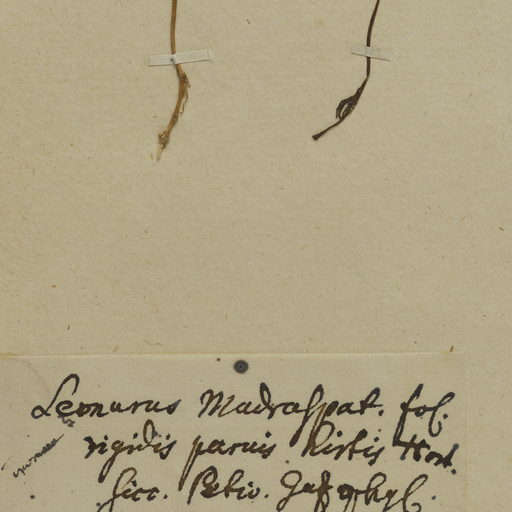 Leonurus Madraspat. fol.
rigidis parvis hirtis Hort.
sicc. Petiv.